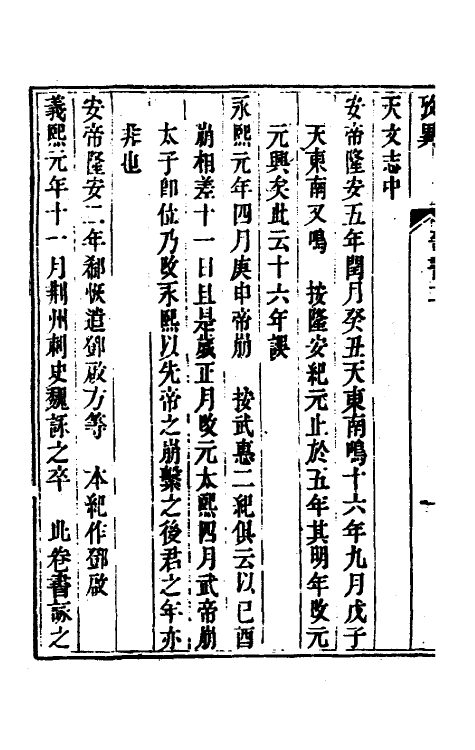 攷異
晉書二
一
天文志中
安帝隆安五年閏月癸丑天東南鳴十六年九月戊子
天東南又鳴　按隆安紀元止於五年其明年改元
元興矣此云十六年誤
永熙元年四月庚申帝崩　按武惠二紀俱云以己酉
崩相差十一日且是歲正月改元太熙四月武帝崩
太子卽位乃改永熙以先帝之崩繫之後君之年亦
非也
安帝隆安二年郗恢遣鄧啟方等　本紀作鄧啟
義熙元年十一月荆州刺史魏詠之卒　此卷書詠之